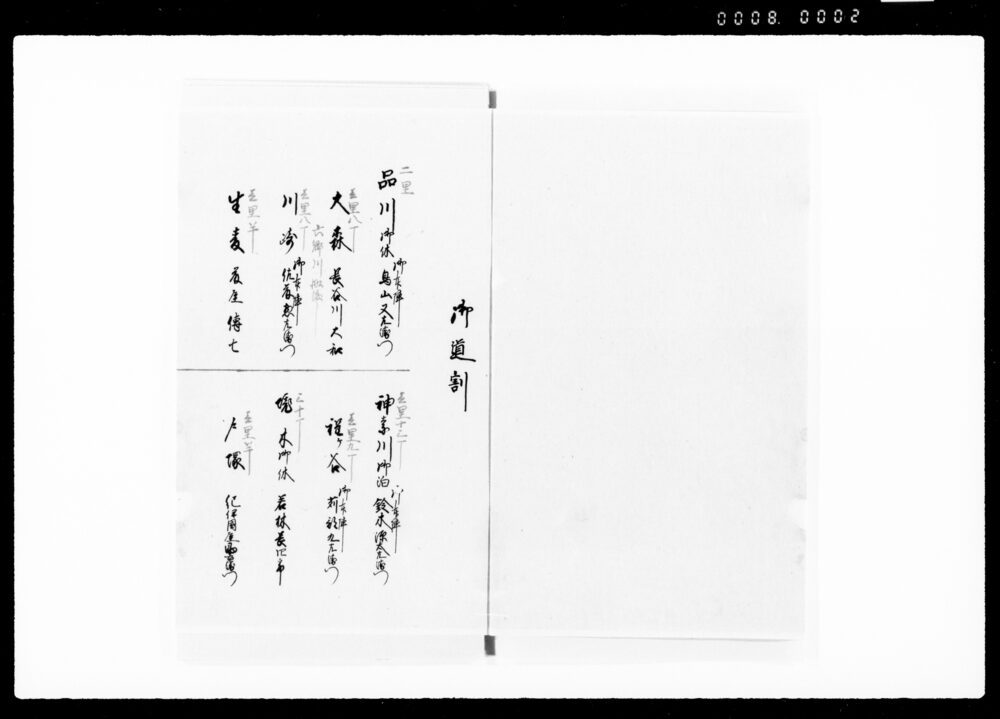 0008. 0002
御道割
二里
品川御休
御本陣
鳥山又左衛門
壱里八丁
大森 長谷川大和
六郷川
壱里八丁
川崎
御本陣
佐藤惣左衛門
壱里半
生麦 藤屋傳七
壱里十三丁
神奈川御泊
御本陣
鈴木源太左衛門
壱里九丁
程ヶ谷
御本陣
苅部九左衛門
三十丁
境木御休 若林長四郎
壱里半
戸塚 紀伊國屋